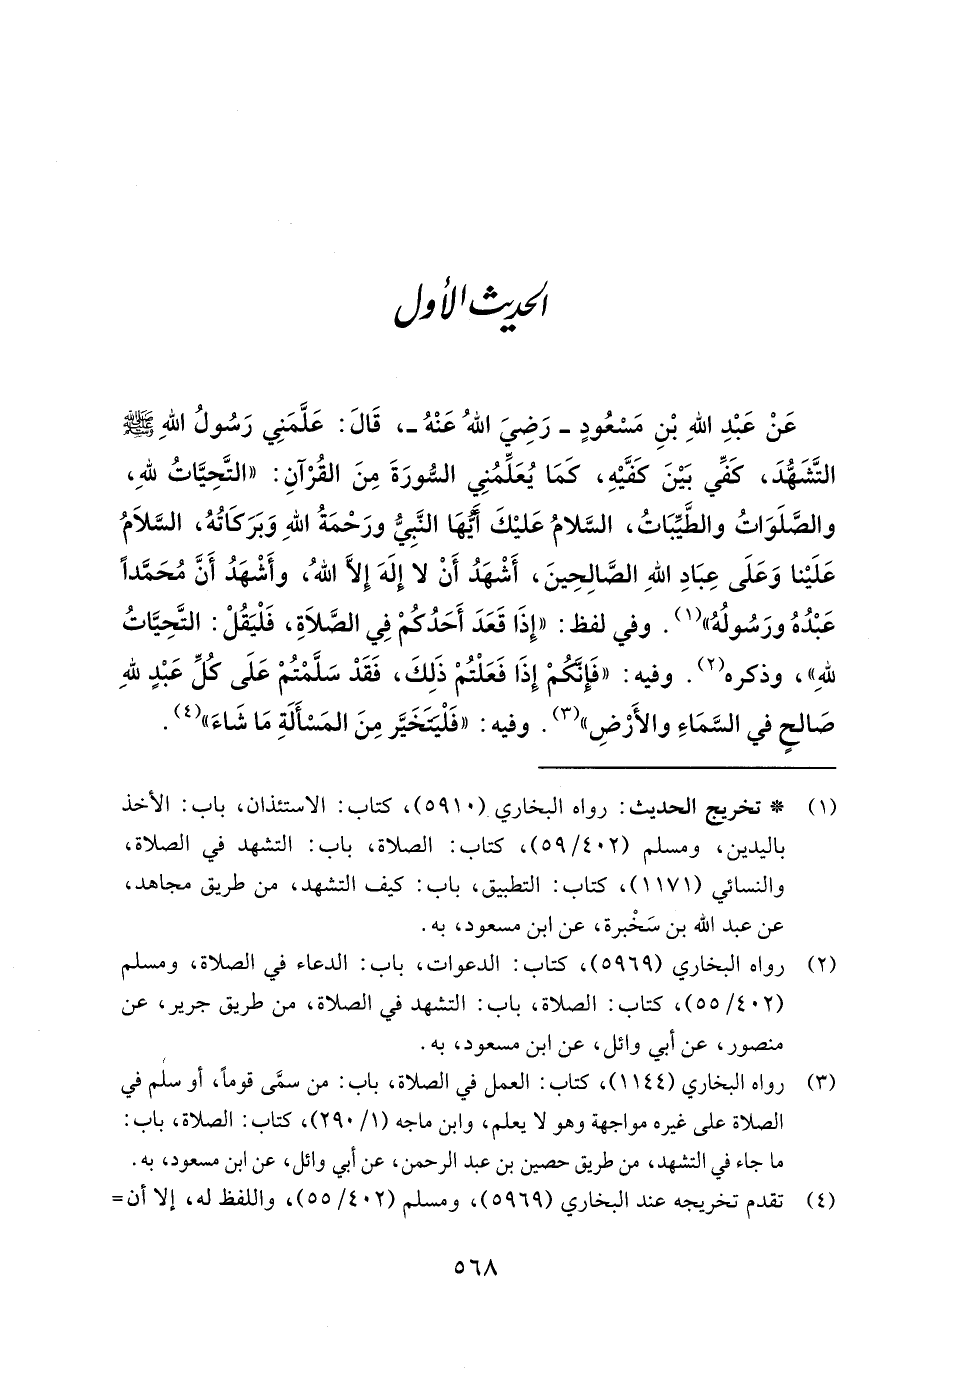 الحديث الأول
عَنْ عَبْدِ اللهِ بْنِ مَسْعُودٍ ـ رَضِيَ اللهُ عَنْهُ ـ، قَالَ: عَلَّمَنِي رَسُولُ اللهِ ﷺ
التَّشَهُّدَ، كَفِّي بَيْنَ كَفَّيْهِ، كَمَا يُعَلِّمُنِي السُّورَةَ مِنَ القُرْآنِ: «التَّحِيَّاتُ للهِ،
والصَّلَوَاتُ والطَّيِّبَاتُ، السَّلامُ عَلَيْكَ أَيُّهَا النَّبِيُّ ورَحْمَةُ اللهِ وَبَرَكَاتُهُ، السَّلاَمُ
عَلَيْنا وَعَلَى عِبَادِ اللهِ الصَّالِحِينَ، أَشْهَدُ أَنْ لا إِلَهَ إِلاَّ اللهُ، وأَشْهَدُ أَنَّ مُحَمَّداً
عَبْدُهُ ورَسُولُهُ»(١). وفي لفظ: «إِذَا قَعَدَ أَحَدُكُمْ فِي الصَّلاَةِ، فَلْيَقُلْ: التَّحِيَّاتُ
للهِ»، وذكره(٢). وفيه: «فَإِنَّكُمْ إِذَا فَعَلْتُمْ ذَلِكَ، فَقَدْ سَلَّمْتُمْ عَلَى كُلِّ عَبْدٍ للهِ
صَالحٍ في السَّمَاءِ والأَرْضِ»(٣). وفيه: «فَلْيَتَخَيَّر مِنَ المَسْأَلَةِ مَا شَاءَ»(٤).
(١) * تخريج الحديث: رواه البخاري (٥٩١٠)، كتاب: الاستئذان، باب: الأخذ
باليدين، ومسلم (٤٠٢/ ٥٩)، كتاب: الصلاة، باب: التشهد في الصلاة،
والنسائي (١١٧١)، كتاب: التطبيق، باب: كيف التشهد، من طريق مجاهد،
عن عبد الله بن سَخْبرة، عن ابن مسعود، به.
(٢) رواه البخاري (٥٩٦٩)، كتاب: الدعوات، باب: الدعاء في الصلاة، ومسلم
(٤٠٢/ ٥٥)، كتاب: الصلاة، باب: التشهد في الصلاة، من طريق جرير، عن
منصور، عن أبي وائل، عن ابن مسعود، به.
(٣) رواه البخاري (١١٤٤)، كتاب: العمل في الصلاة، باب: من سمَّى قوماً، أو سلَّم في
الصلاة على غيره مواجهة وهو لا يعلم، وابن ماجه (١/ ٢٩٠)، كتاب: الصلاة، باب:
ما جاء في التشهد، من طريق حصين بن عبد الرحمن، عن أبي وائل، عن ابن مسعود، به.
(٤) تقدم تخريجه عند البخاري (٥٩٦٩)، ومسلم (٤٠٢/ ٥٥)، واللفظ له، إلا أن=
٥٦٨